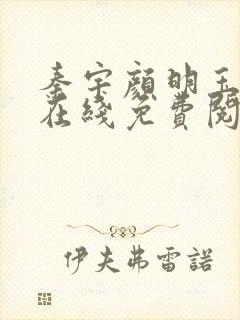 秦宇顏明玉
在綫免費閱
伊夫弗雷諾